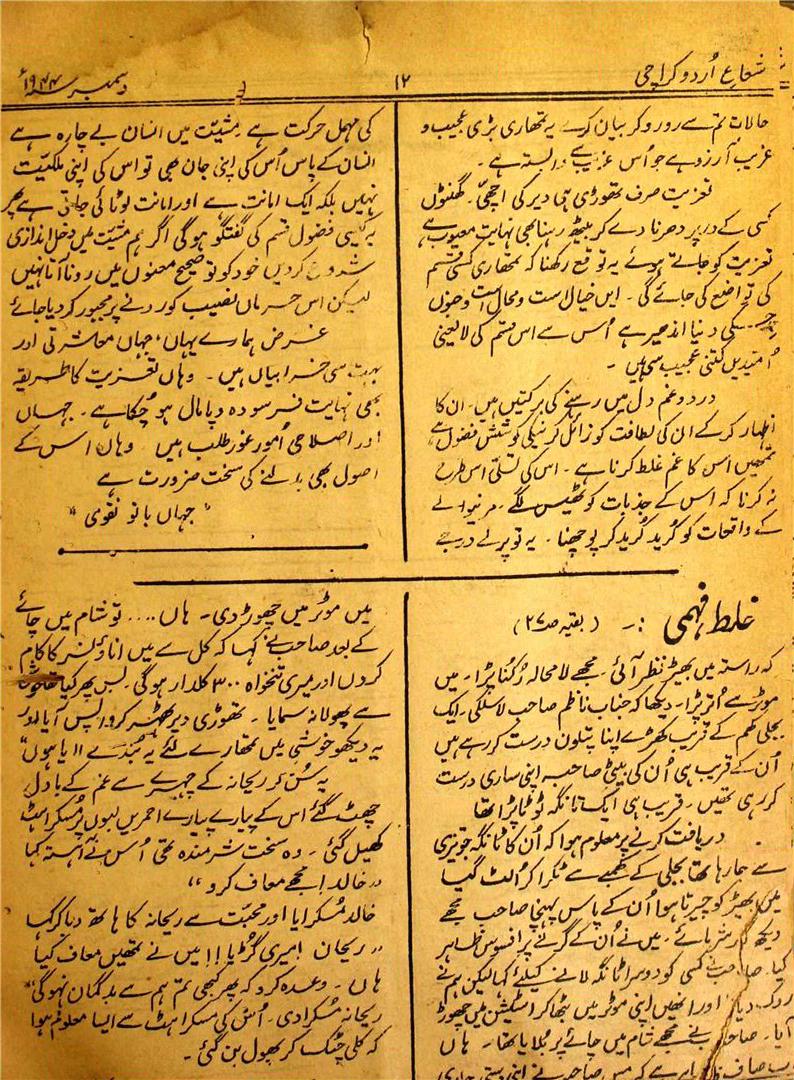 شعاعِ اُردو کراچی
۱۲
دسمبر ۱۹۴۴ء
حالات تم سے رو رو کر بیان کرے یہ تمھاری بڑی عجیب و
غریب آرزو ہے جو اُس غریب سے وابستہ ہے۔
تعزیت صرف تھوڑی ہی دیر کی اچھی۔ گھنٹوں
کسی کے در پر دھرنا دے کر بیٹھ رہنا بھی نہایت معیوب ہے
تعزیت کو جاتے ہوئے یہ توقع رکھنا کہ تمھاری کسی قسم
کی تواضع کی جائے گی۔ ایں خیال ست و محال است و جنوں
جس کی دنیا اندھیر ہے اُس سے اس قسم کی لایعنی
اُمیدیں کتنی عجیب سی ہیں۔
درد و غم دل میں رہنے کی برکتیں ہیں۔ ان کا
اظہار کر کے ان کی لطافت کو زائل کرنیکی کوشش فضول ہے
تمھیں اس کا غم غلط کرنا ہے۔ اس کی تسلی اس طرح
نہ کرنا کہ اس کے جذبات کو ٹھیس لگے۔ مرنیوالے
کے واقعات کو کُرید کُرید کر پوچھنا۔ یہ تو پرلے درجے
کی مہمل حرکت ہے۔ مشیّت میں انسان بے چارہ ہے
انسان کے پاس اُس کی اپنی جان بھی تو اس کی اپنی ملکیّت
نہیں بلکہ ایک امانت ہے اور امانت لوٹائی جاتی ہے پھر
یہ کیسی فضول قسم کی گفتگو ہو گی اگر ہم مشیّت میں دخل اندازی
شروع کر دیں خود کو تو صحیح معنوں میں رونا آتا نہیں
لیکن اس حرماں نصیب کو رونے پر مجبور کر دیا جائے
غرض ہمارے یہاں، جہاں معاشرتی اور
بہت سی خرابیاں ہیں۔ وہاں تعزیت کا طریقہ
بھی نہایت فرسودہ و پامال ہو چُکا ہے۔ جہاں
اور اصلاحی اُمور غور طلب ہیں۔ وہاں اس کے
اصول بھی بدلنے کی سخت ضرورت ہے
"جہاں بانو نقوی"
غلط فہمی :۔ (بقیہ صہ ۲۷)
کہ راستہ میں بھیڑ نظر آئی۔ مجھے لا محالہ رُکنا پڑا۔ میں
موٹر سے اُتر پڑا۔ دیکھا کہ جناب ناظم صاحب لاسلکی۔ ایک
بجلی کھم کے قریب کھڑے اپنا پتلون درست کر رہے ہیں
اُن کے قریب ہی اُن کی بیٹی صاحبہ اپنی ساری درست
کر رہی تھیں۔ قریب ہی ایک تانگہ ٹوٹا پڑا تھا
دریافت کرنے پر معلوم ہوا کہ اُن کا تانگہ جو تیزی
سے جا رہا تھا بجلی کے کھمبے سے ٹکرا کر اُلٹ گیا
میں بھیڑ کو چیرتا ہوا اُن کے پاس پہنچا صاحب مجھے
دیکھ کر شرمائے۔ میں نے اُن کے گرنے پر افسوس ظاہر
کیا۔ صاحب نے کسی کو دوسرا ٹانگہ لانے کیلئے کہا لیکن ہم نے
روک دیا اور انھیں اپنی موٹر میں بٹھا کر اسٹیشن میں چھوڑ
آیا۔ صاحب نے مجھے شام میں چائے پر بُلایا تھا۔ ہاں
صاف ہے کہ مس صاحبہ نے اپنی دستی ہماری
ہیں موٹر میں چھوڑ دی۔ ہاں .... تو شام میں چائے
کے بعد صاحب نے کہا کہ کل سے میں اناؤنسر کا کام
کروں اور میری تنخواہ ۳۰۰ کلدار ہو گی۔ بس پھر کیا تھا خوشی
سے پھولا نہ سمایا۔ تھوڑی دیر ٹھہر کر واپس آیا اور
یہ دیکھو خوشی میں تمھارے لئے یہ بُندے لایا ہوں"
یہ سُن کر ریحانہ کے چہرے سے غم کے بادل
چھٹ گئے اس کے پیارے پیارے احمریں لبوں پر مُسکراہٹ
کھیل گئی۔ وہ سخت شرمندہ تھی اُس نے آہستہ کہا
"خالد! مجھے معاف کرو"
خالد مُسکرایا اور محبّت سے ریحانہ کا ہاتھ دبا کر کہا
"ریحان! میری گڑیا!! میں نے تمھیں معاف کیا
ہاں۔ وعدہ کرو کہ پھر کبھی تم ہم سے بدگمان نہو گی"
ریحانہ مُسکرا دی۔ اُس کی مسکراہٹ سے ایسا معلوم ہوا
کہ کلی چٹک کر پھول بن گئی۔